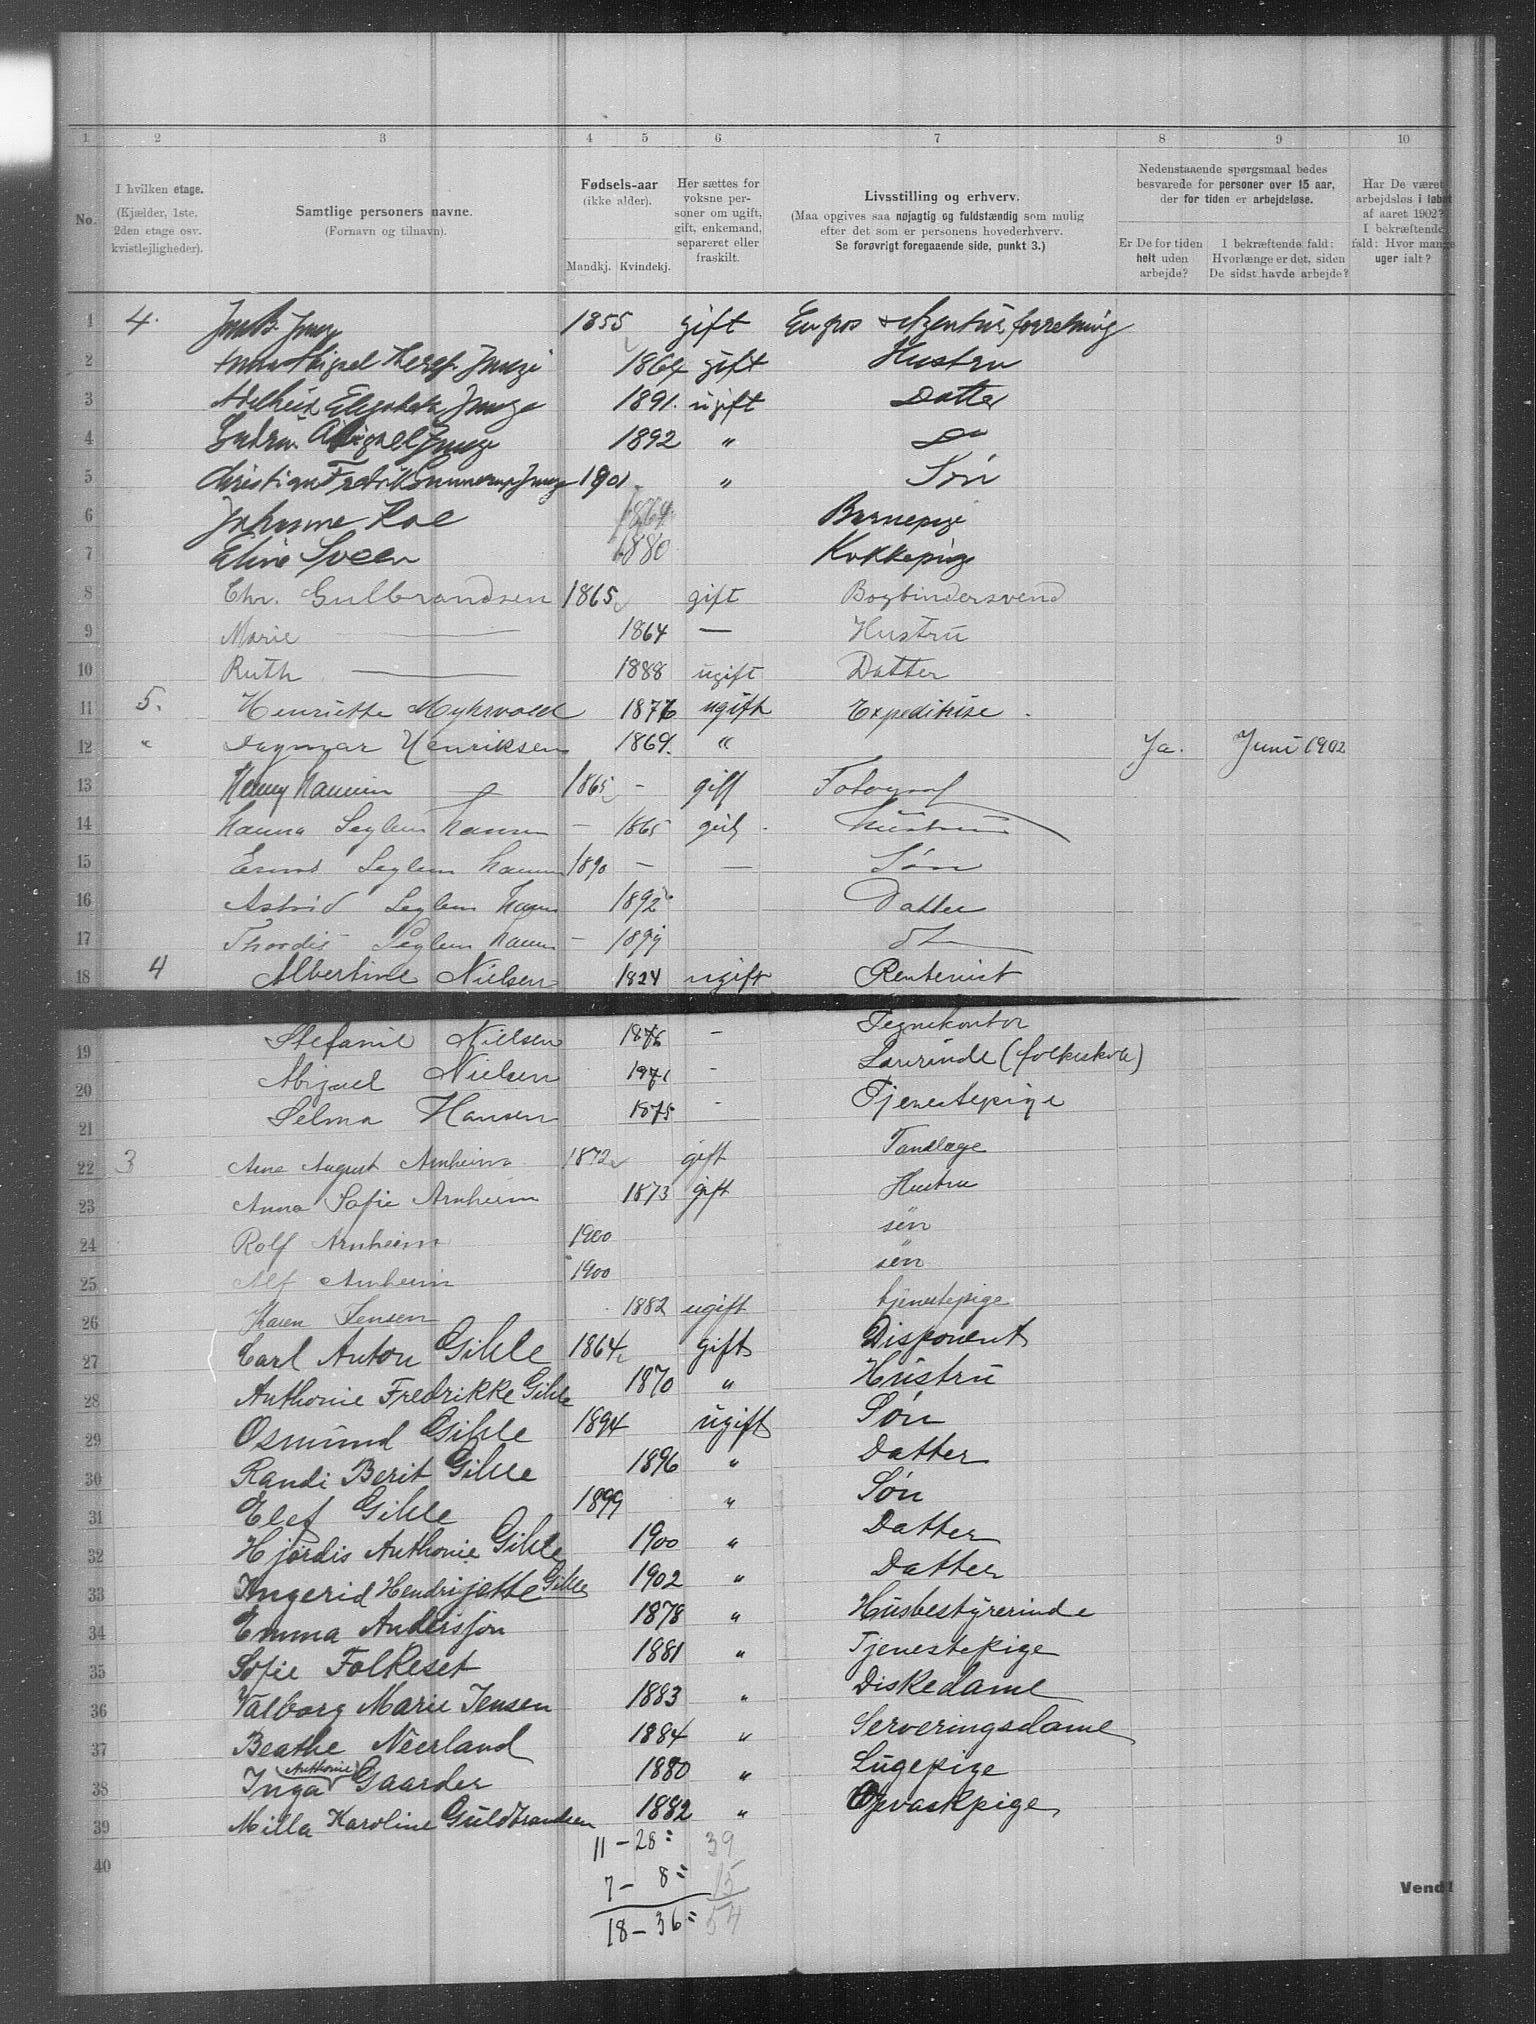 1 2 3 4 5 6 7 8 9 10
No.
I hvilken etage.
(Kjælder, 1ste,
2den etage osv.
kvistlejligheder).
Samtlige personers navne.
(Fornavn og tilnavn).
Fødsels-aar
(ikke alder).
Mandkj. Kvindekj.
Her sættes for
voksne per-
soner om ugift,
gift, enkemand,
separeret eller
fraskilt.
Livsstilling og erhverv.
(Maa opgives saa nøjagtig og fuldstændig som mulig
efter det som er personens hovederhverv.
Se forøvrigt foregaaende side, punkt 3.)
Nedenstaaende spørgsmaal bedes
besvarede for personer over 15 aar,
der for tiden er arbejdsløse.
Er De for tiden
helt uden
arbejde?
I bekræftende fald:
Hvorlænge er det, siden
De sidst havde arbejde?
Har De været
arbejdsløs i løbet
af aaret 1902?
I bekræftende
fald: Hvor mange
uger ialt?
1 4. 1855 gift Engros & Agentur forretning
2 1864 gift Hustru
3 Adelheid Elisabeth 1891. ugift Datter
4 1892 " Do
5 Christian Fredrik 1901 " Søn
6 Johanne Roe 1869 Barnepige
7 Eline Sveen 1880 Kokkepige
8 Chr. Gulbrandsen 1865 gift Bogbindersvend
9 Marie — 1864 — Hustru
10 Ruth — 1888 ugift Datter
11 5. Henriette Myhrvold 1876 ugift Expeditrise.
12 " Dagmar Henriksen 1869. " Ja. Juni 1902
13 1865 - gift Fotograf
14 Hanna Seglem Hansen - 1865 gift Hustru
15 Seglem Hansen 1890 — — Søn
16 Astrid Seglem Hansen 1892 Datter
17 Thordis Seglem Hansen - 1899 do
18 4 Albertine Nielsen 1824 ugift Rentenist
19 Stefanie Nielsen 1876 - Tegnekontor
20 Abigael Nielsen 1871 - Lærerinde (folkeskole)
21 Selma Hansen 1875 - Tjenestepige
22 3 Arne August Arnheim 1872 gift Tandlæge
23 Anna Sofie Arnheim 1873 gift Hustru
24 Rolf Arnheim 1900 søn
25 Alf Arnheim 1900 søn
26 Karen Jensen 1882 ugift tjenestepige
27 Carl Anton Gihle 1864 gift Disponent
28 Anthonie Fredrikke Gihle 1870 " Hustru
29 Osmund Gihle 1894 ugift Søn
30 Randi Berit Gihle 1896 " Datter
31 Elef Gihle 1899 " Søn
32 Hjørdis Anthonie Gihle 1900 " Datter
33 Ingerid Hendrijette Gihle 1902 " Datter
34 Emma Andersson 1878 " Husbestyrerinde
35 Sofie Folkeset 1881 " Tjenestepige
36 Valborg Marie Jensen 1883 " Diskedame
37 Beathe Neerland 1884 " Serveringsdame
38 Inga Anthonie Gaarder 1880 " Lugepige
39 Milla Karoline Guldbrandsen 1882 " Opvaskpige
40 11 - 28 = 39
7 - 8 = 15
18 - 36 = 54
Vend!